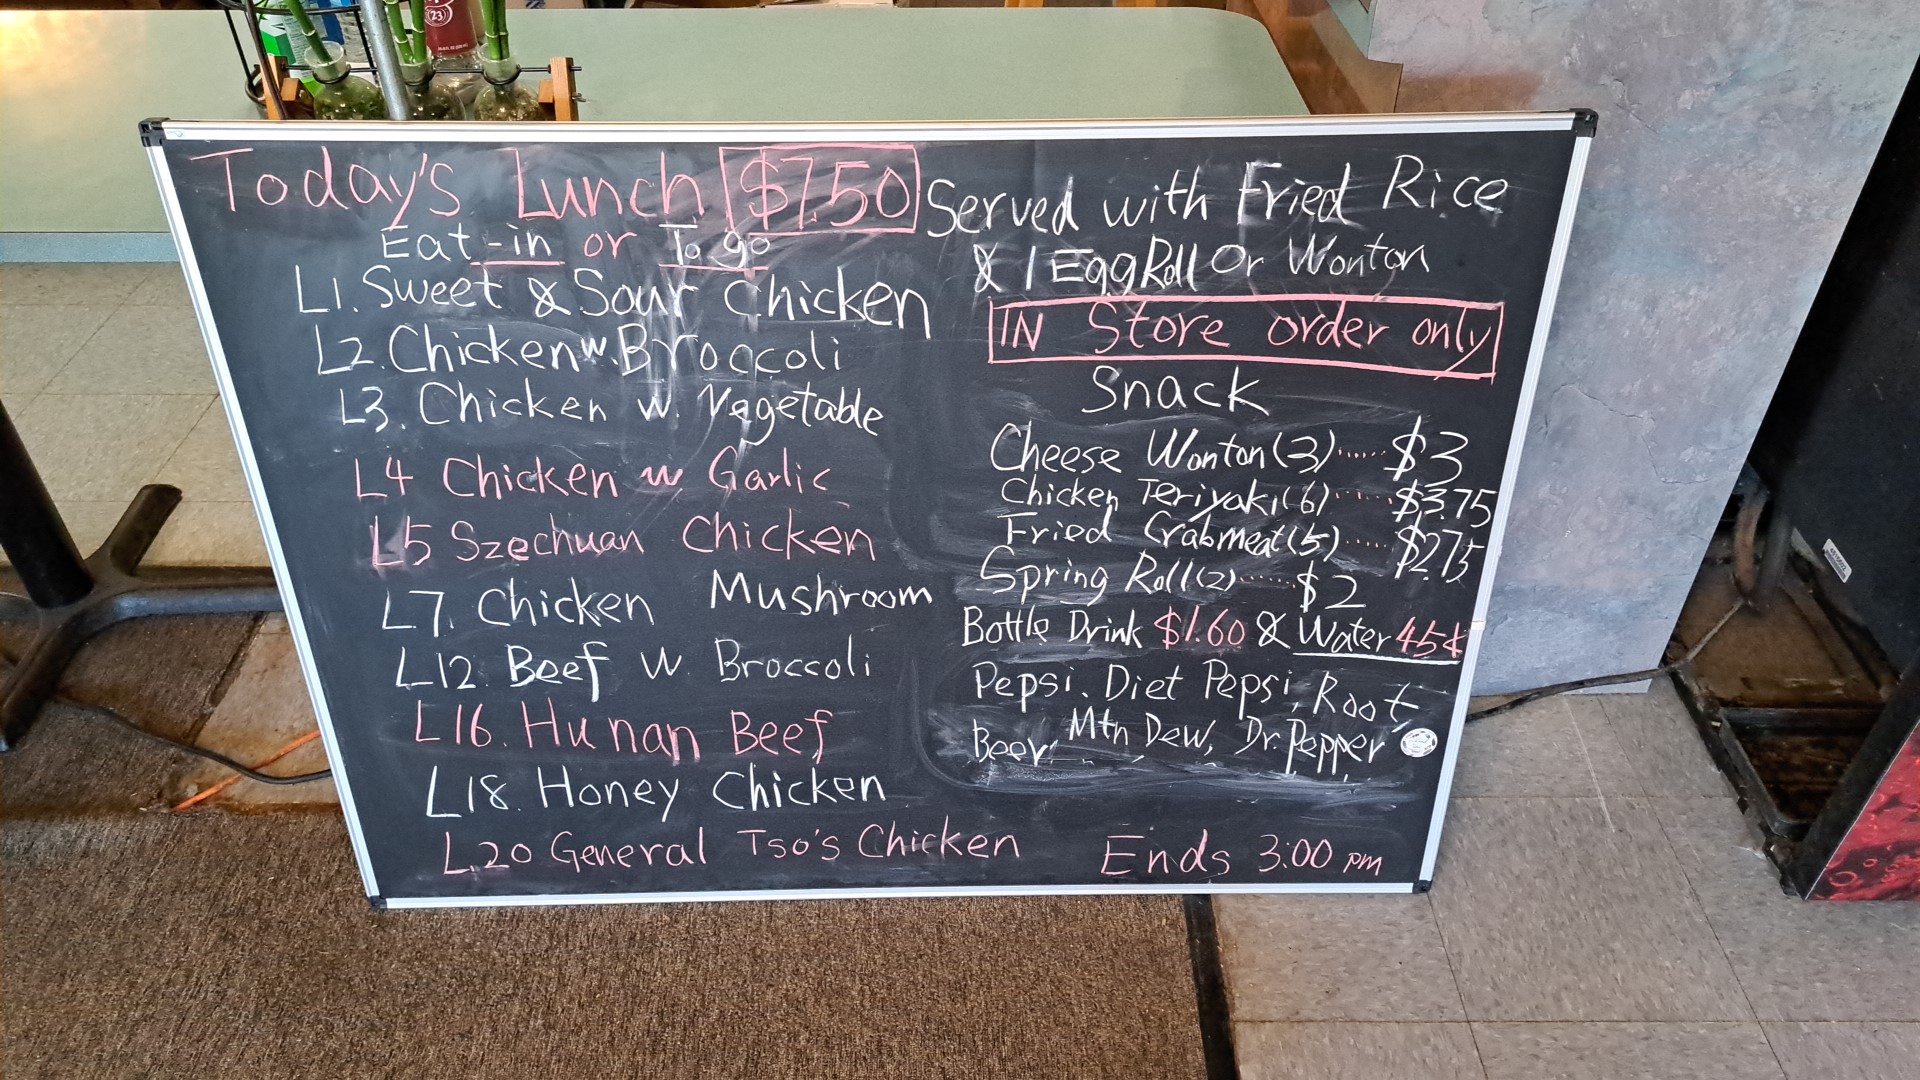 Today's Lunch $7.50
Eat-in or To go
L1. Sweet & Sour Chicken
L2. Chicken w. Broccoli
L3. Chicken w. Vegetable
L4 Chicken w Garlic
L5 Szechuan Chicken
L7. Chicken Mushroom
L12. Beef w. Broccoli
L16. Hunan Beef
L18. Honey Chicken
L20 General Tso's Chicken
Served with Fried Rice
& 1 Egg Roll Or Wonton
IN Store order only
Snack
Cheese Wonton (3)...... $3
Chicken Teriyaki (6)...... $3.75
Fried Crabmeat (5)...... $2.75
Spring Roll (2)...... $2
Bottle Drink $1.60 & Water 45¢
Pepsi. Diet Pepsi, Root
Beer, Mtn Dew, Dr. Pepper
Ends 3:00 pm
(23)